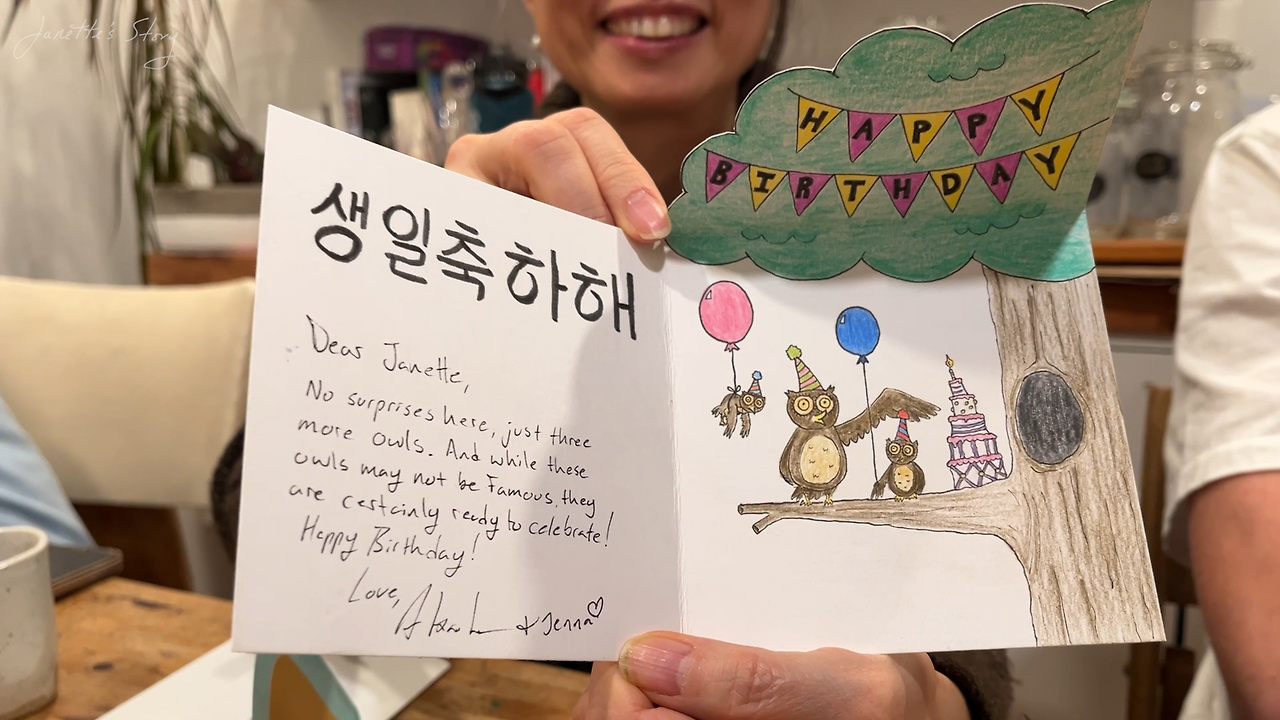 Janette's Story
생일축하해
Dear Janette,
No surprises here, just three
more owls. And while these
owls may not be famous, they
are certainly ready to celebrate!
Happy Birthday!
Love,
& Jenna
HAPPY
BIRTHDAY